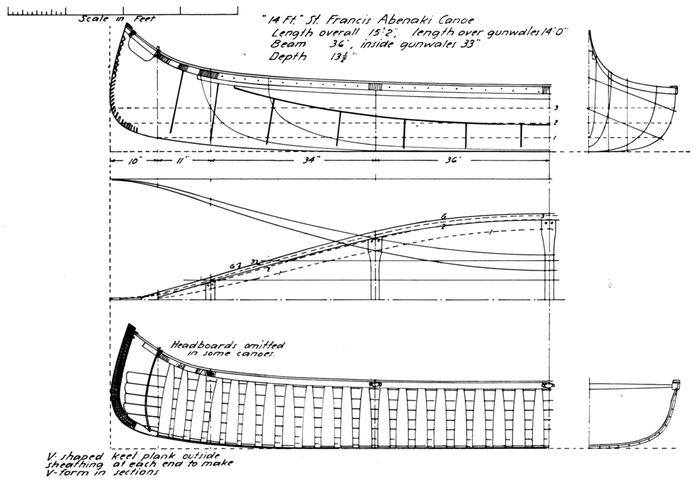 Scale in Feet
"14 Ft." St. Francis Abenaki Canoe
Length overall 15'2", length over gunwales 14'0"
Beam 36", inside gunwales 33"
Depth 13½"
3
2
1
10"
11"
34"
36"
G
3
2
1
Headboards omitted
in some canoes.
V-shaped keel plank outside
sheathing at each end to make
V-form in sections